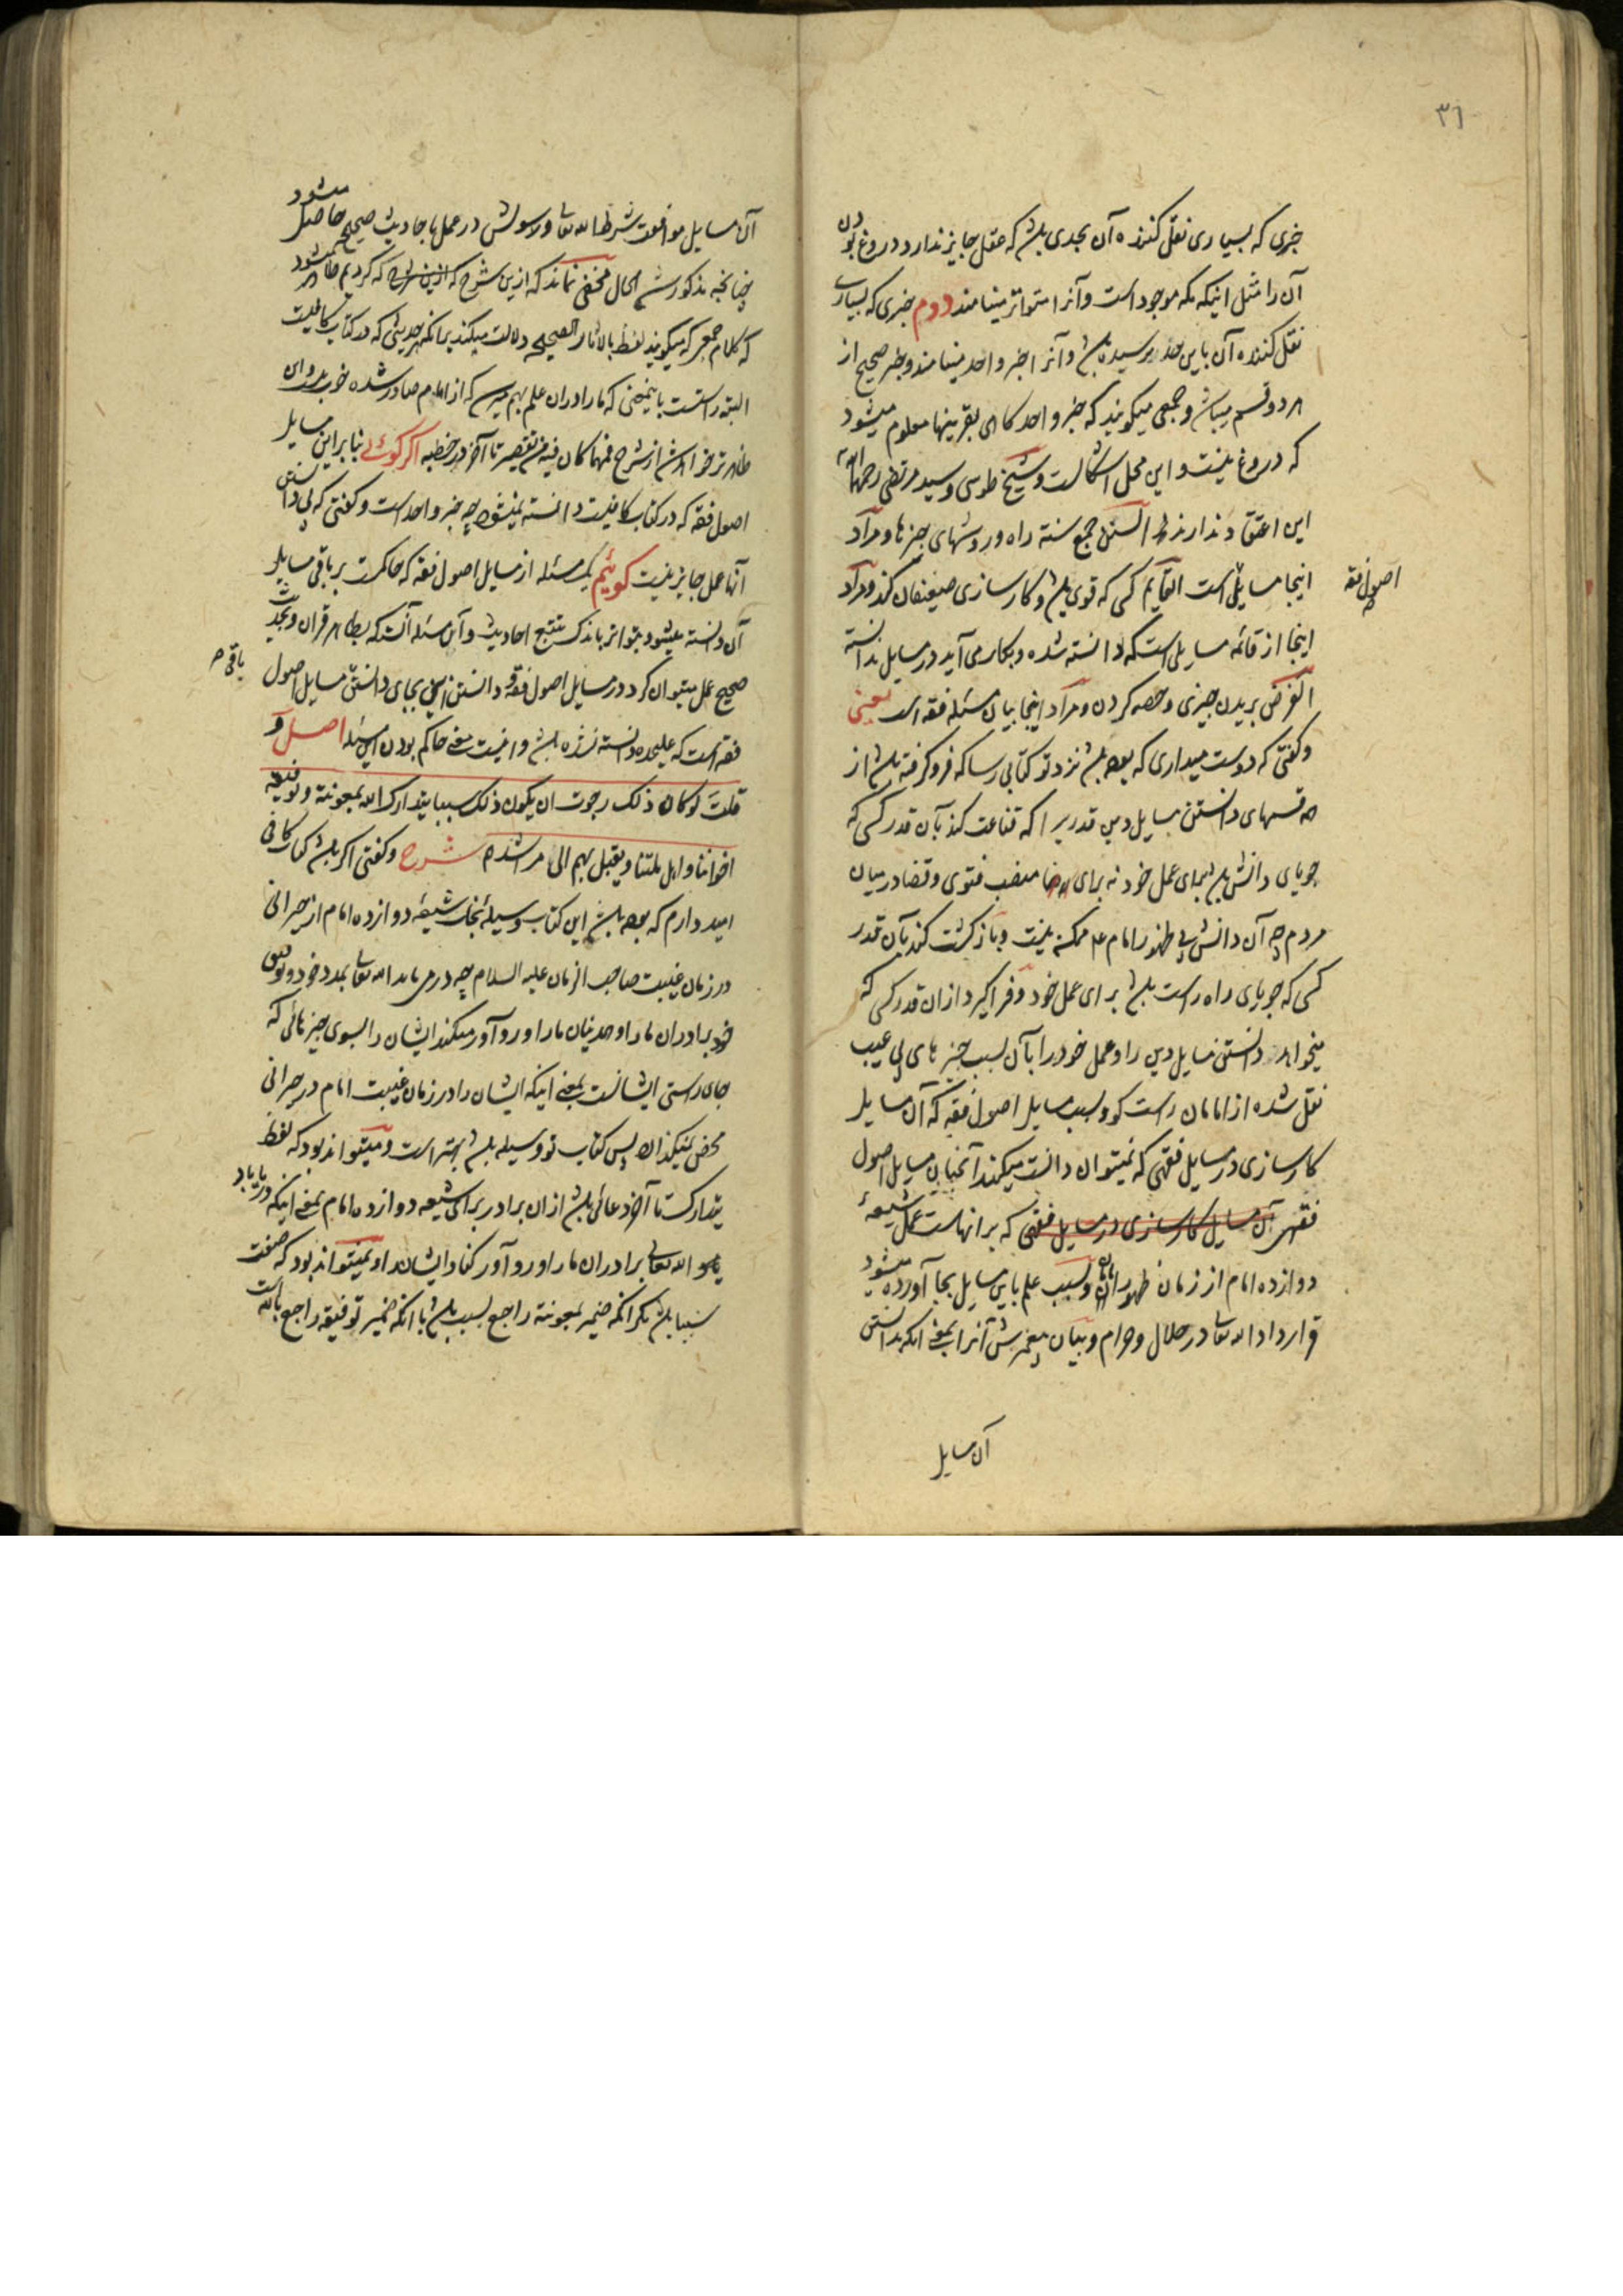 ۳٦
خبری که بسیاری نقل کننده آن بحدی باشد که عقل جایز ندارد دروغ بودن
آن را مثل اینکه مکه موجود است و آنرا متواتر مینامند دوم خبری که بسیاری
نقل کننده آن باین حد نرسیده باشد و آنرا خبر واحد مینامند و خبر صحیح از
هر دو قسم میباشد و جمعی میگویند که خبر واحد گاهی بقرینها معلوم میشود
که دروغ نیست و این محل اشکالست و شیخ طوسی و سید مرتضی رحمهما الله
این اعتقاد ندارند السنن جمع سنة راه و روشهای چیزها و مراد
اینجا مسایلی است القایم کسی که قوی باشد و کارسازی ضعیفان کند و مراد
اصول فقه
اینجا از قائمه مسایلی است که دانسته شده و بکار می آید در مسایل ندانسته
الفرض بریدن چیزی و حصه کردن و مراد اینجا بیان مسئله فقه است یعنی
و گفتی که دوست میداری که بوده باشد نزد تو کتابی رسا که فرو گرفته باشد از
همه قسمهای دانستن مسایل دین قدری را که قناعت کند بآن قدر کسی که
جویای دانش باشد برای عمل خود نه برای منصب فتوی و قضا در میان
مردم چه آن دانش بی ظهور امام ع ممکن نیست و بازگشت کند بآن قدر
کسی که جویای راه راست باشد برای عمل خود و فرا گیرد ازان قدر کسی که
میخواهد دانستن مسایل دین را و عمل خود را بآن بسبب چیزهای بی عیب
نقل شده از امامان راست گو و بسبب مسایل اصول فقه که آن مسایل
کارسازی در مسایل فقهی که نمیتوان دانست میکند آنچنان مسایل اصول
فقهی آن مسایل کارسازی در مسایل فقهی که برانهاست عمل شیعهٔ
دوازده امام از زمان ظهور امامان و بسبب علم باین مسایل بجا آورده میشود
قرارداد الله تعالی در حلال و حرام و بیان پیغمبرش آنرا بمعنی آنکه بدانستن
آن مسایل
آن مسایل موافقت شرط الله تعالی و رسولش در عمل باحادیث صحیح حاصل میشود
چنانچه مذکور شد الحال مخفی نماند که ازین شرح که ازین شرح که کردیم ظاهر میشود
که کلام جمعی که میگویند لفظ بالاثار الصحیحه دلالت میکند برانکه هر حدیثی که در کتاب کافیست
البته راستست باینمعنی که ما را دران علم بهم میرسد که از امام صادر شده خوب نیست و این
ظاهرتر خواهد شد از شرح فمهما کان فیه من تقصیر تا آخر در خطبه اگر گوئی بنا براین مسایل
اصول فقه که در کتاب کافیست دانسته نمیشود چه خبر واحد است و گفتی که بی دانستن
آنها عمل جایز نیست گوئیم یک مسئله از مسایل اصول فقه که حاکمست بر باقی مسایل
آن دانسته میشود بتواتر باندک تتبع احادیث و آن مسئله آنست که بظاهر قرآن و بحدیث
صحیح عمل میتوان کرد در مسایل اصول فقه و دانستن این بجای دانستن مسایل اصول
باقی ص
فقه است که علیحده دانسته نشده باشد و اینست معنی حاکم بودن این مسئله اصل و
قلت لو کان ذلک رجوت ان یکون ذلک سببا یتدارک الله بمعونته و توفیقه
اخواننا و اهل ملتنا و یقبل بهم الی مراشدهم شرح و گفتی اگر باشد کتاب کافی
امید دارم که بوده باشد این کتاب وسیلهٔ نجات شیعهٔ دوازده امام از حیرانی
در زمان غیبت صاحب الزمان علیه السلام چه در می یابد الله تعالی بمدد خود و توفیق
خود برادران ما را و همدینان ما را و رو آور میکند ایشان را بسوی چیزهائی که
جای راستی ایشانست بمعنی اینکه ایشان را در زمان غیبت امام در حیرانی
محض نمیگذارد پس کتاب تو وسیله باشد بهتر است و میتواند بود که لفظ
یتدارک تا آخر دعائی باشد ازان برادر برای شیعه دوازده امام بمعنی اینکه دریاباد
الله تعالی برادران ما را و رو آور کناد ایشانرا و میتواند بود که صفت
سببا باشد بگر آنکه ضمیر بمعونته راجع بسبب باشد یا آنکه ضمیر توفیقه راجع بالله است